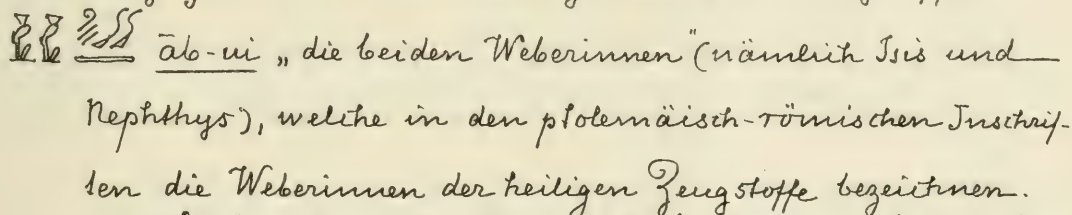 āb-ui „die beiden Weberinnen" (nämlich Isis und
Nephthys), welche in den ptolemäisch-römischen Inschrif-
ten die Weberinnen der heiligen Zeugstoffe bezeichnen.